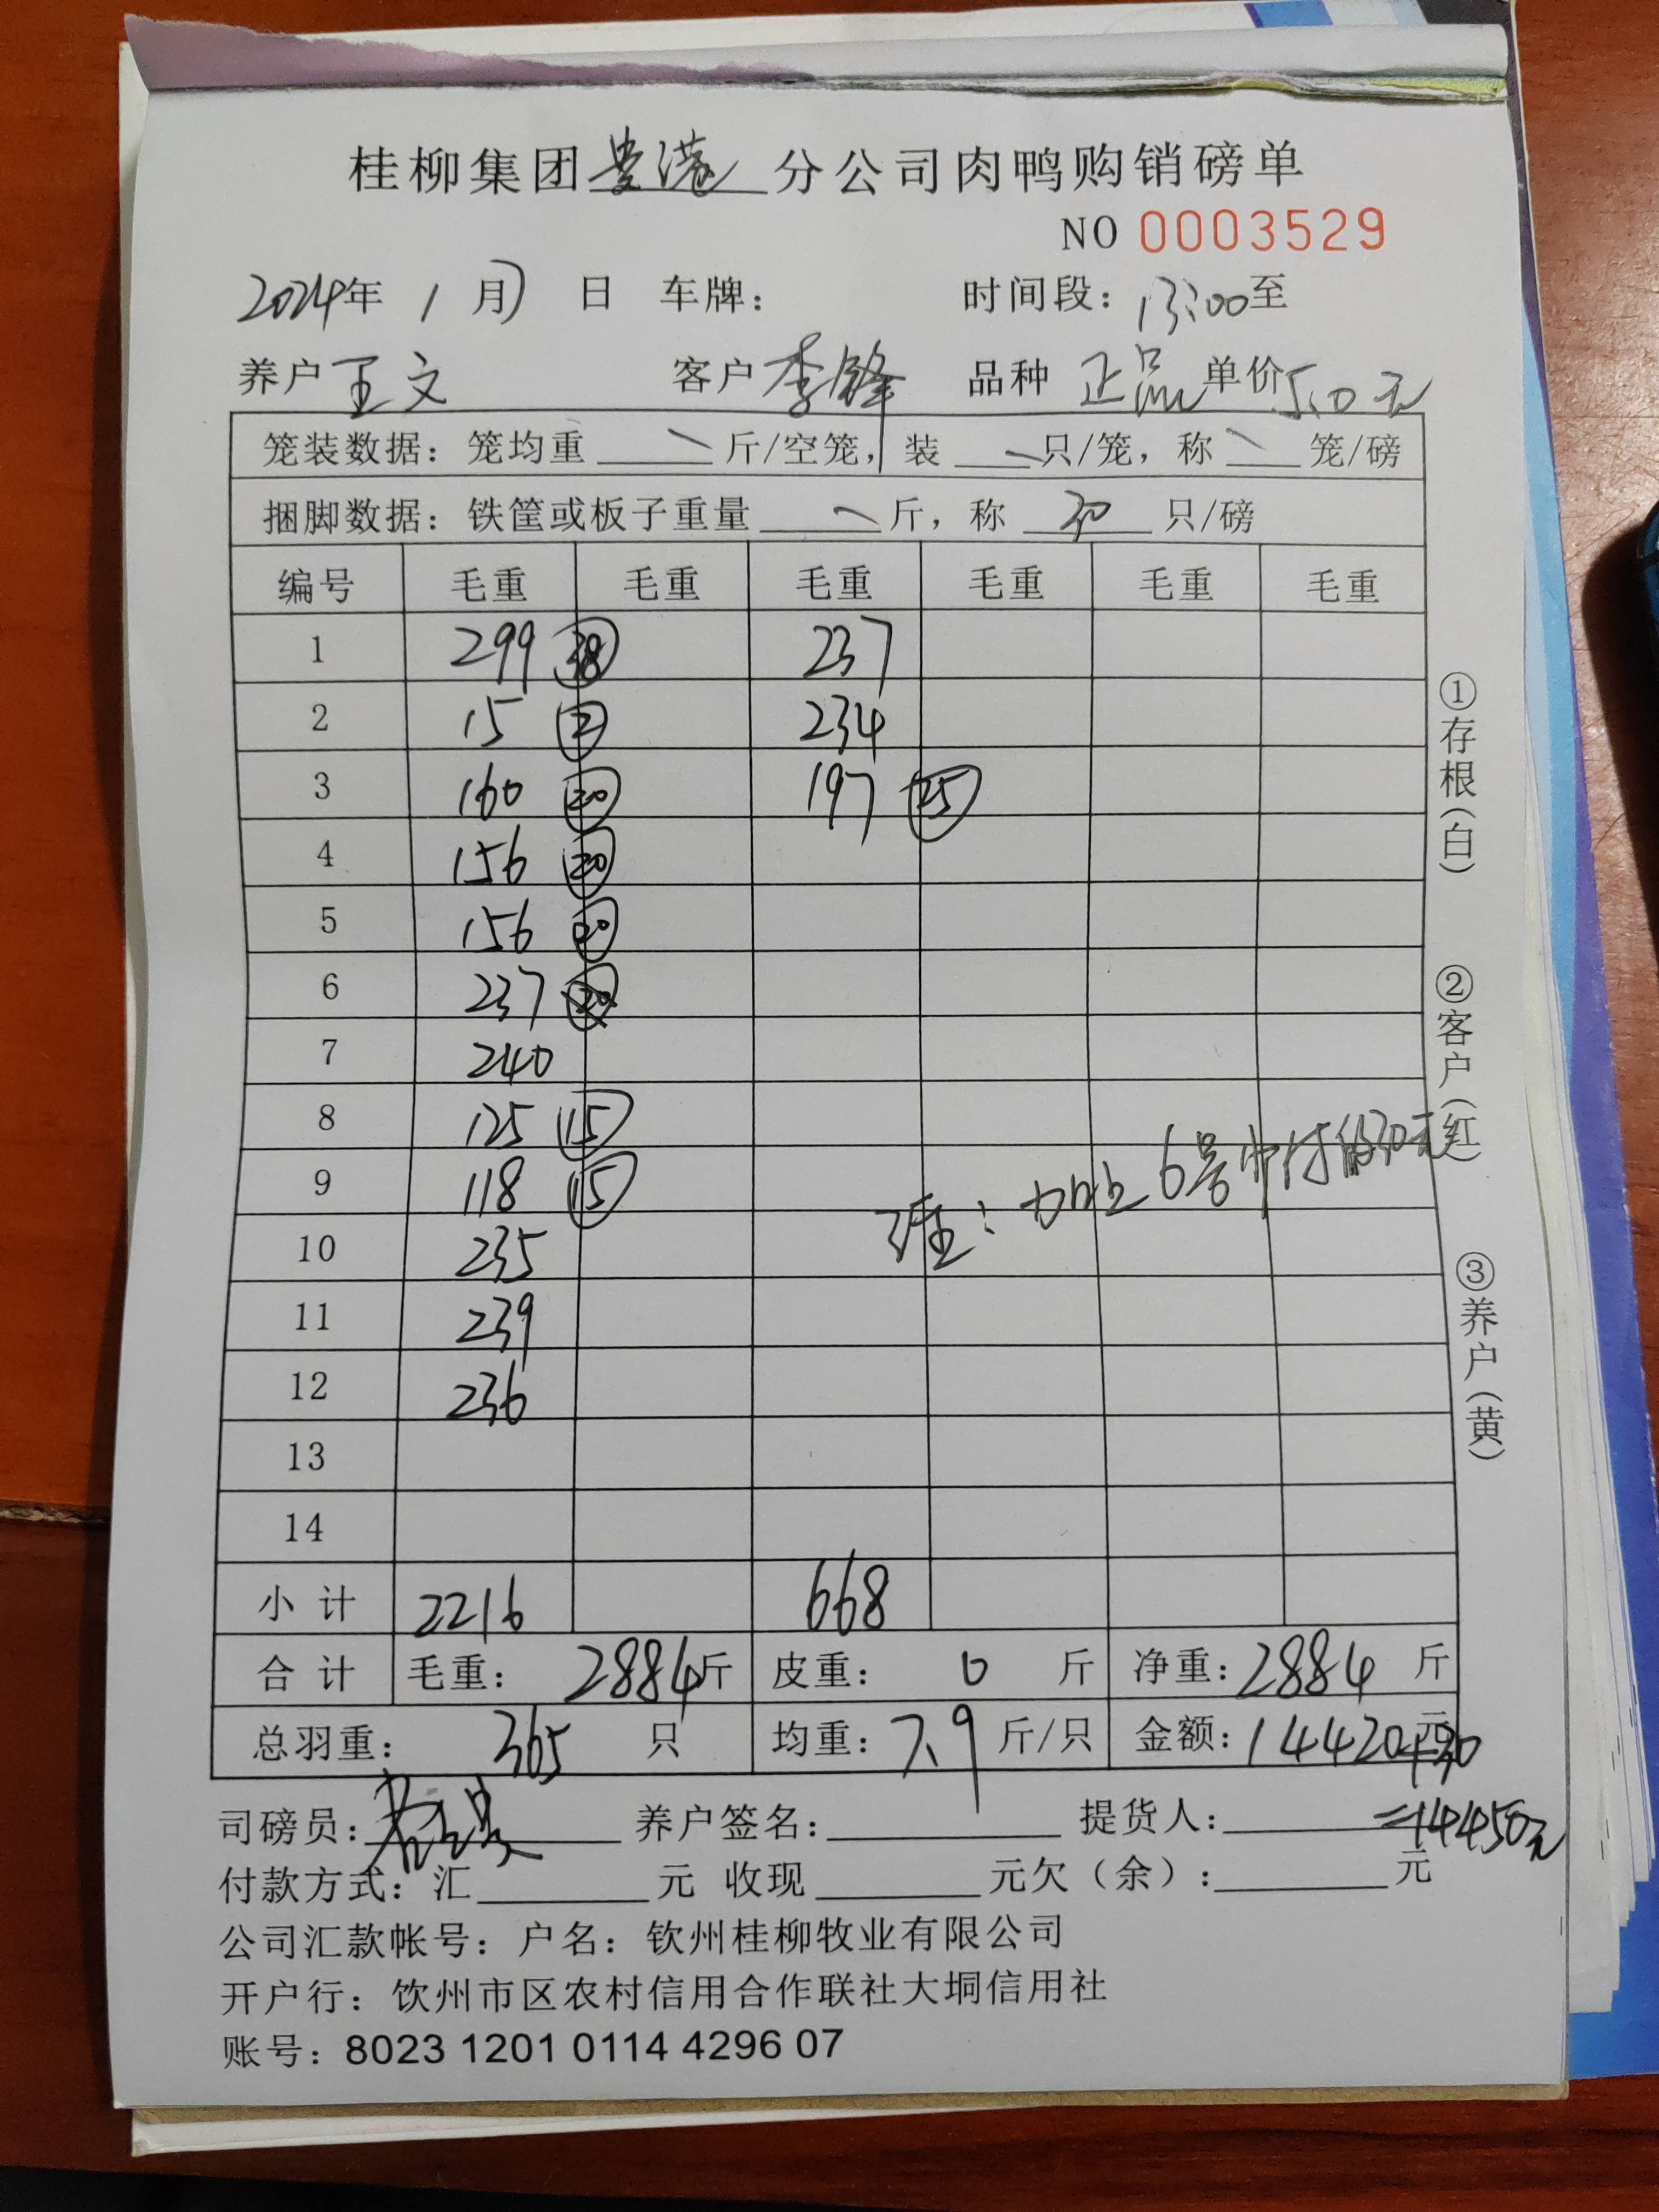 桂柳集团贵港分公司肉鸭购销磅单
NO 0003529
2024年 1月7日 车牌： 时间段：13:00至
养户 王文 客户 李锋 品种 正品 单价 5.0元
笼装数据：笼均重 斤/空笼，装 只/笼，称 笼/磅
捆脚数据：铁筐或板子重量 斤，称 30 只/磅
编号 毛重 毛重 毛重 毛重 毛重 毛重
1 299 38 237
2 15 2 234
3 160 20 197 25
4 156 20
5 156 20
6 237
7 240
8 125 15
9 118 15
10 235
11 239
12 236
13
14
注：加上6号少付的30元
小计 2216 668
合计 毛重：2884斤 皮重：0斤 净重：2884斤
总羽重：365只 均重：7.9斤/只 金额：14420元+30
=14450元
司磅员： 养户签名： 提货人：
付款方式：汇 元 收现 元欠（余）： 元
公司汇款帐号：户名：钦州桂柳牧业有限公司
开户行：钦州市区农村信用合作联社大垌信用社
账号：8023 1201 0114 4296 07
①存根（白）
②客户（红）
③养户（黄）